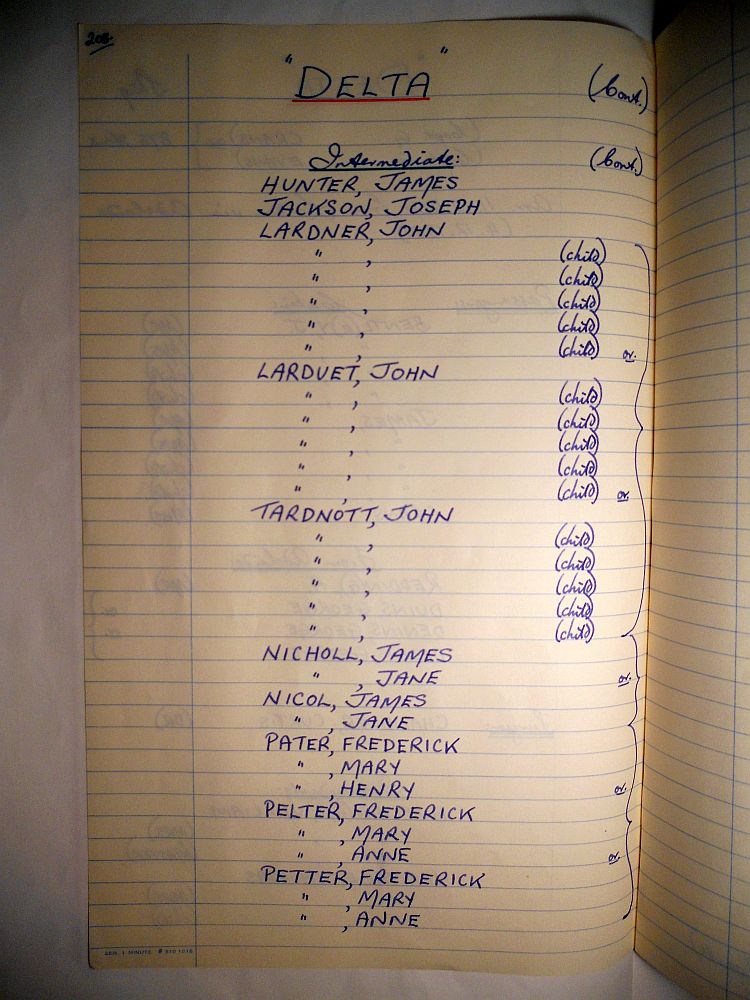 208.
"DELTA" (Cont.)
Intermediate: (Cont.)
HUNTER, JAMES
JACKSON, JOSEPH
LARDNER, JOHN
" , (child)
" , (child)
" , (child)
" , (child)
" , (child) or.
LARDUET, JOHN
" , (child)
" , (child)
" , (child)
" , (child)
" , (child) or.
TARDNOTT, JOHN
" , (child)
" , (child)
" , (child)
" , (child)
" , (child)
NICHOLL, JAMES
" , JANE or.
NICOL, JAMES
" , JANE
PATER, FREDERICK
" , MARY
" , HENRY or.
PELTER, FREDERICK
" , MARY
" , ANNE or.
PETTER, FREDERICK
" , MARY
" , ANNE